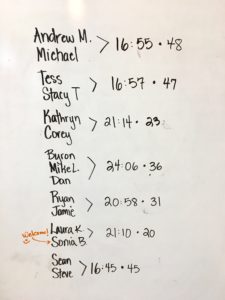 Andrew M.
Michael > 16:55 • 48
Tess
Stacy T > 16:57 • 47
Kathryn
Corey > 21:14 • 23
Byron
Mike L. > 24:06 • 36
Dan
Ryan
Jamie > 20:58 • 31
Welcome! Laura K.
Sonia B. > 21:10 • 20
Sean
Steve > 16:45 • 45